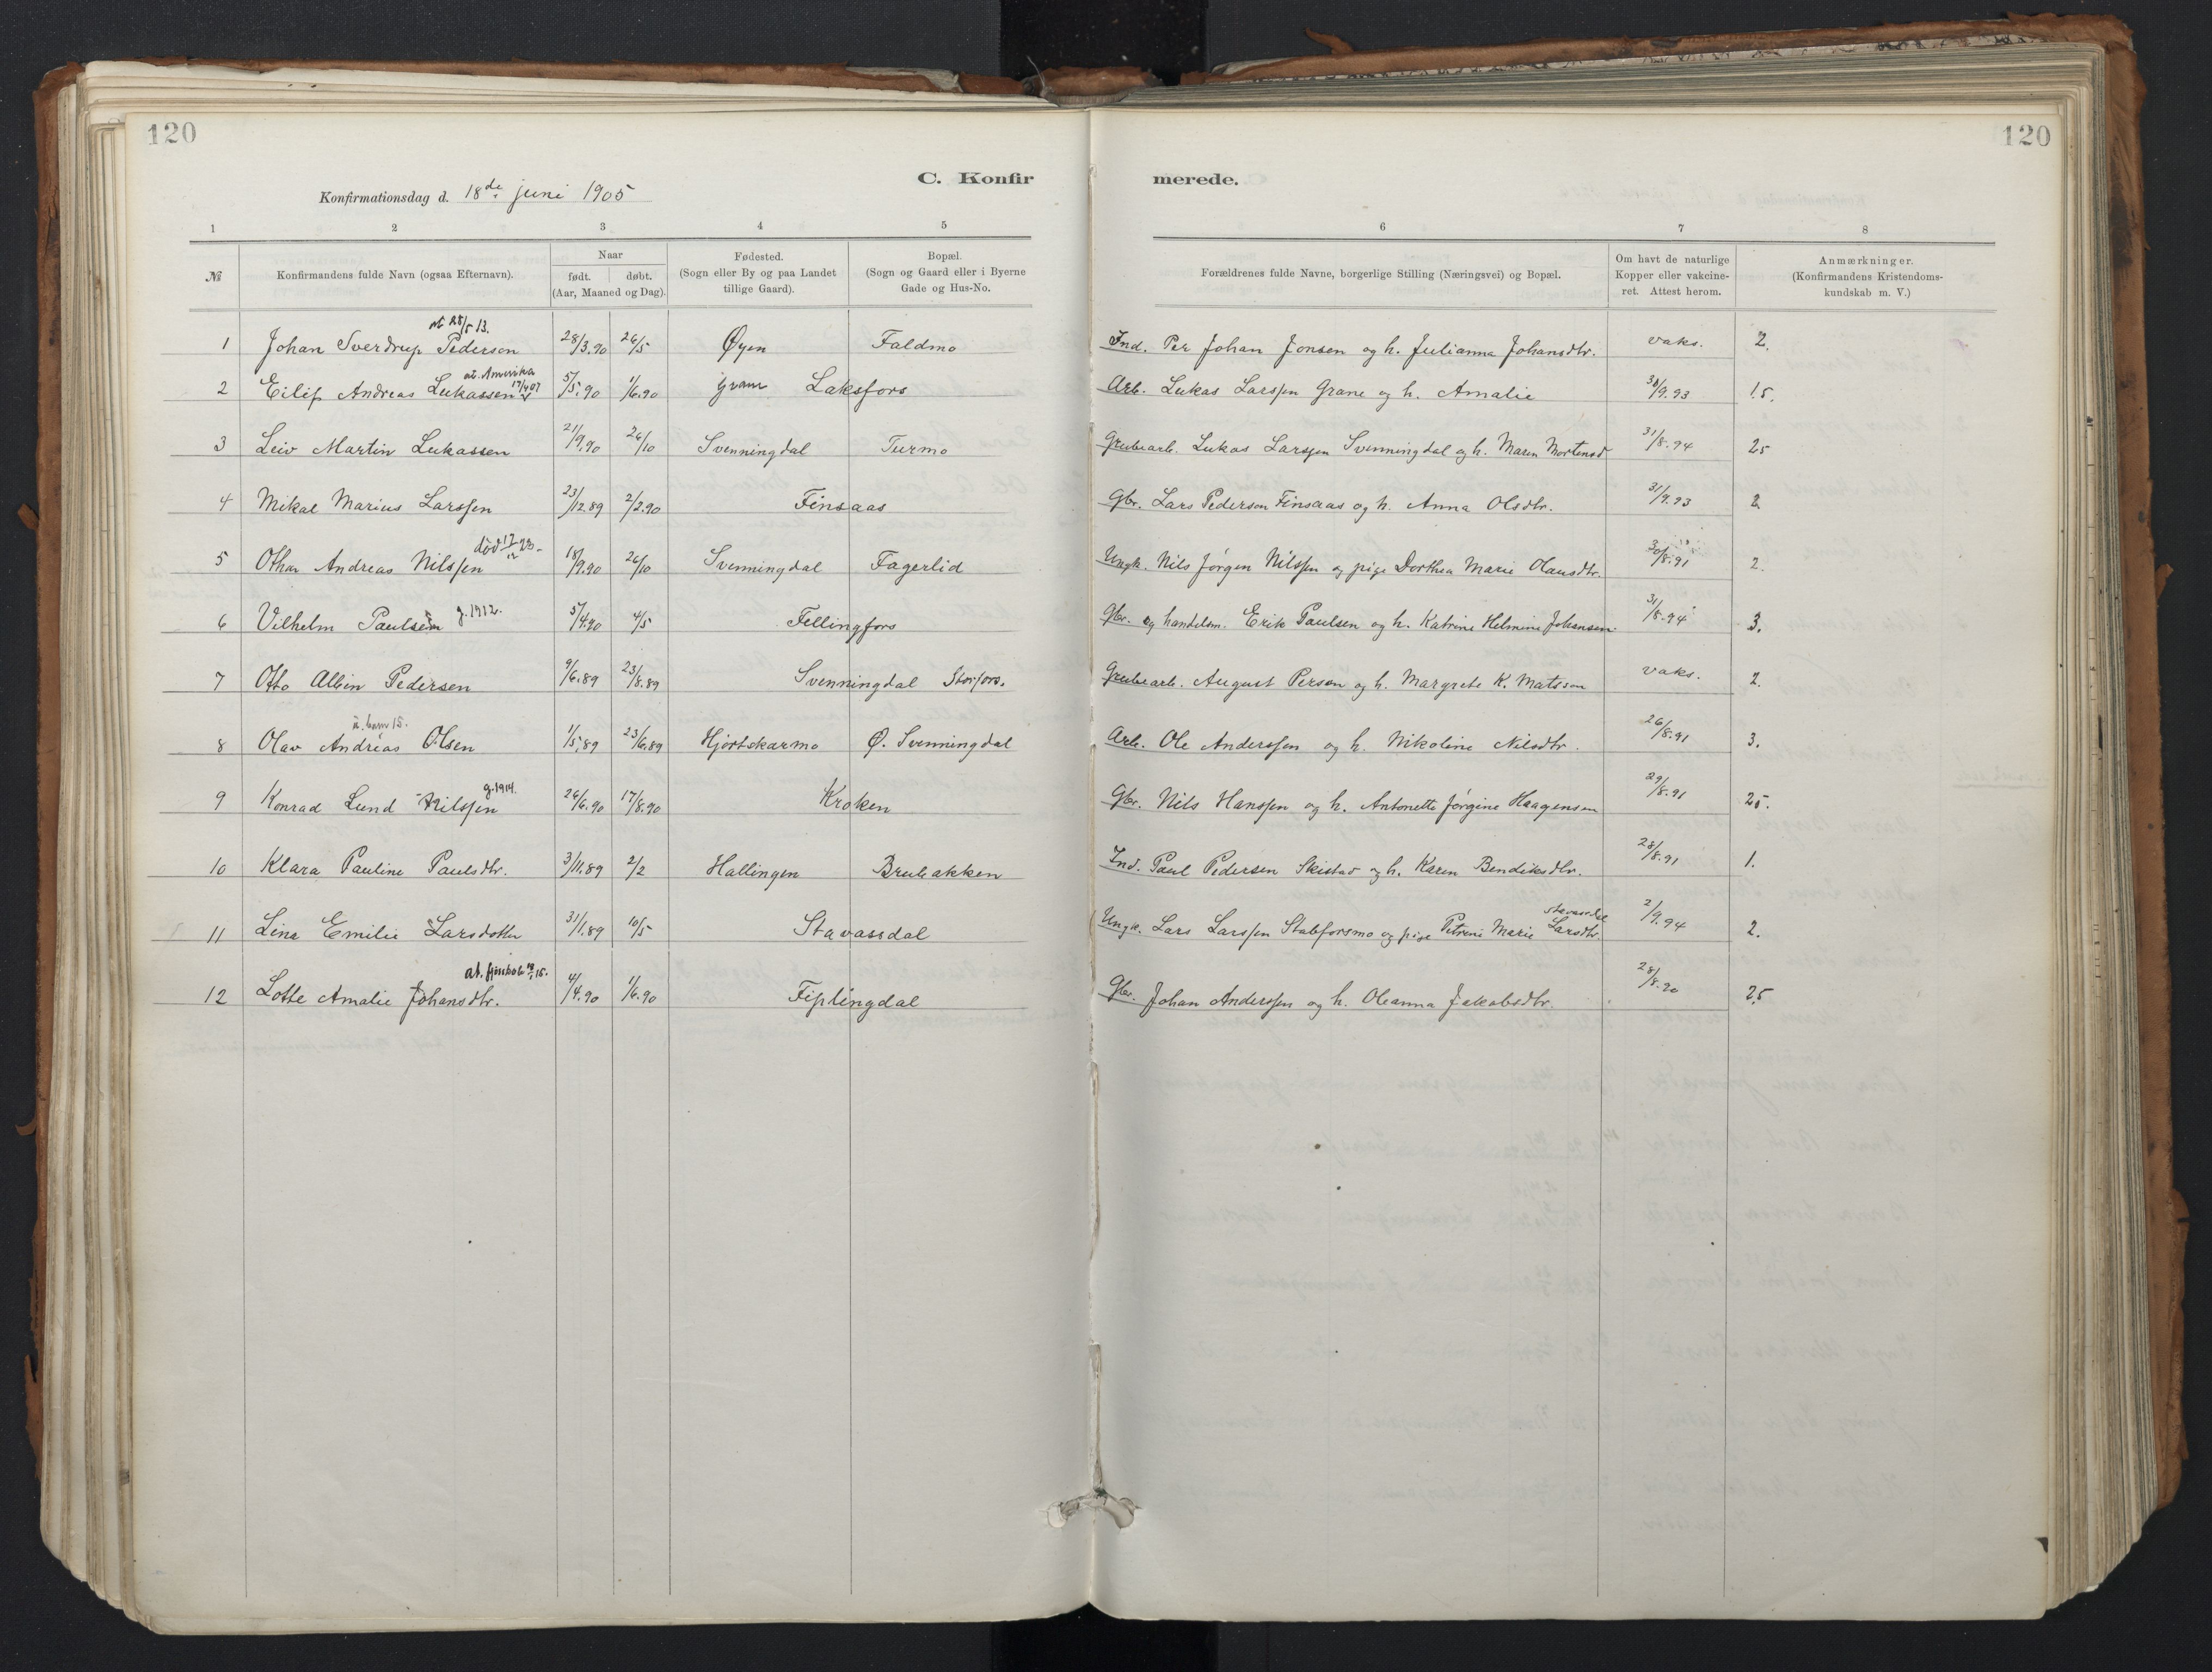 120
120
C. Konfir
merede.
Konfirmationsdag d. 18de juni 1905
1 2 3 4 5 6 7 8
№ Konfirmandens fulde Navn (ogsaa Efternavn). Naar født. døbt. (Aar, Maaned og Dag). Fødested. (Sogn eller By og paa Landet tillige Gaard). Bopæl. (Sogn og Gaard eller i Byerne Gade og Hus-No. Forældrenes fulde Navne, borgerlige Stilling (Næringsvei) og Bopæl. Om havt de naturlige Kopper eller vakcineret. Attest herom. Anmærkninger. (Konfirmandens Kristendomskundskab m. V.)
at 28/5 13.
1 Johan Sverdrup Pedersen 28/3.90 26/5 Øyen Faldmo Ind. Per Johan Jonsen og h. Julianna Johansdtr. vaks. 2.
at. Amerika 17/4 07
2 Eilif Andreas Lukassen 5/5.90 1/6.90 Grane Laksfors Arb. Lukas Larssen Grane og h. Amalie 30/9.93 1.5.
3 Leiv Martin Lukassen 21/9.90 26/10 Svenningdal Turmo Grubearb. Lukas Larssen Svenningdal og h. Maren Mortensd 31/8.94 25
4 Mikal Marius Larssen 23/12.89 2/2.90 Finsaas Gbr. Lars Pederson Finsaas og h. Anna Olsdtr. 31/9.93 2
død 17/12 23.
5 Othar Andreas Nilssen 18/9.90 26/10 Svenningdal Fagerlid Ungk. Nils Jørgen Nilssen og pige Dorthea Marie Olausdtr. 30/8.91 2.
6 Vilhelm Paulsen g. 1912. 5/4.90 4/5 Fellingfors Gbr. og handelsm. Erik Paulsen og h. Katrine Helmine Johansen. 31/8.94 3.
7 Otto Albin Pedersen 9/6.89 23/8.89 Svenningdal Storfors. Grubearb. August Persen og h. Margrete K. Matsson vaks. 2.
8 Olav Andreas Olsen 1/5.89 23/6.89 Hjortskarmo Ø. Svenningdal Arb. Ole Anderssen og h. Nikoline Nilsdtr. 26/8.91 3.
g. 1914.
9 Konrad Lund Nilssen 26/6.90 17/8.90 Kroken Gbr. Nils Hanssen og h. Antonette Jørgine Haagensen 29/8.91 25.
10 Klara Pauline Paulsdtr. 3/11.89 2/2 Hallingen Brubakken Ind. Paul Pedersen Skistad og h. Karen Bendiksdtr. 28/8.91 1.
Stavassdal
11 Lina Emilie Larsdotter 31/1.89 10/5 Stavassdal Ungk. Lars Larssen Stabforsmo og pige Petrine Marie Larsdtr. 2/9.94 2.
12 Lotte Amalie Johansdtr. 4/4.90 1/6.90 Fiplingdal Gbr. Johan Anderssen og h. Oleanna Jakobsdtr. 28/8.90 2,5